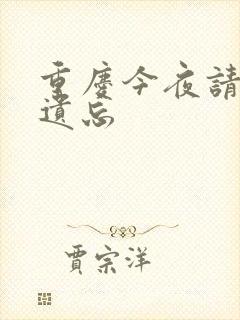 重慶今夜請
遺忘
賈宗洋